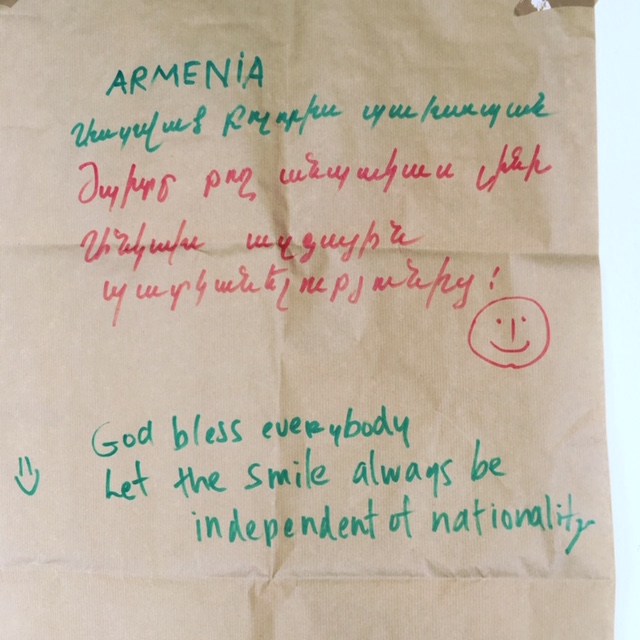 ARMENIA
Աստված բոլորիս պահապան
Ժպիտը թող անպակաս լինի
Անկախ ազգային
պատկանելությունից:
God bless everybody
Let the smile always be
independent of nationality